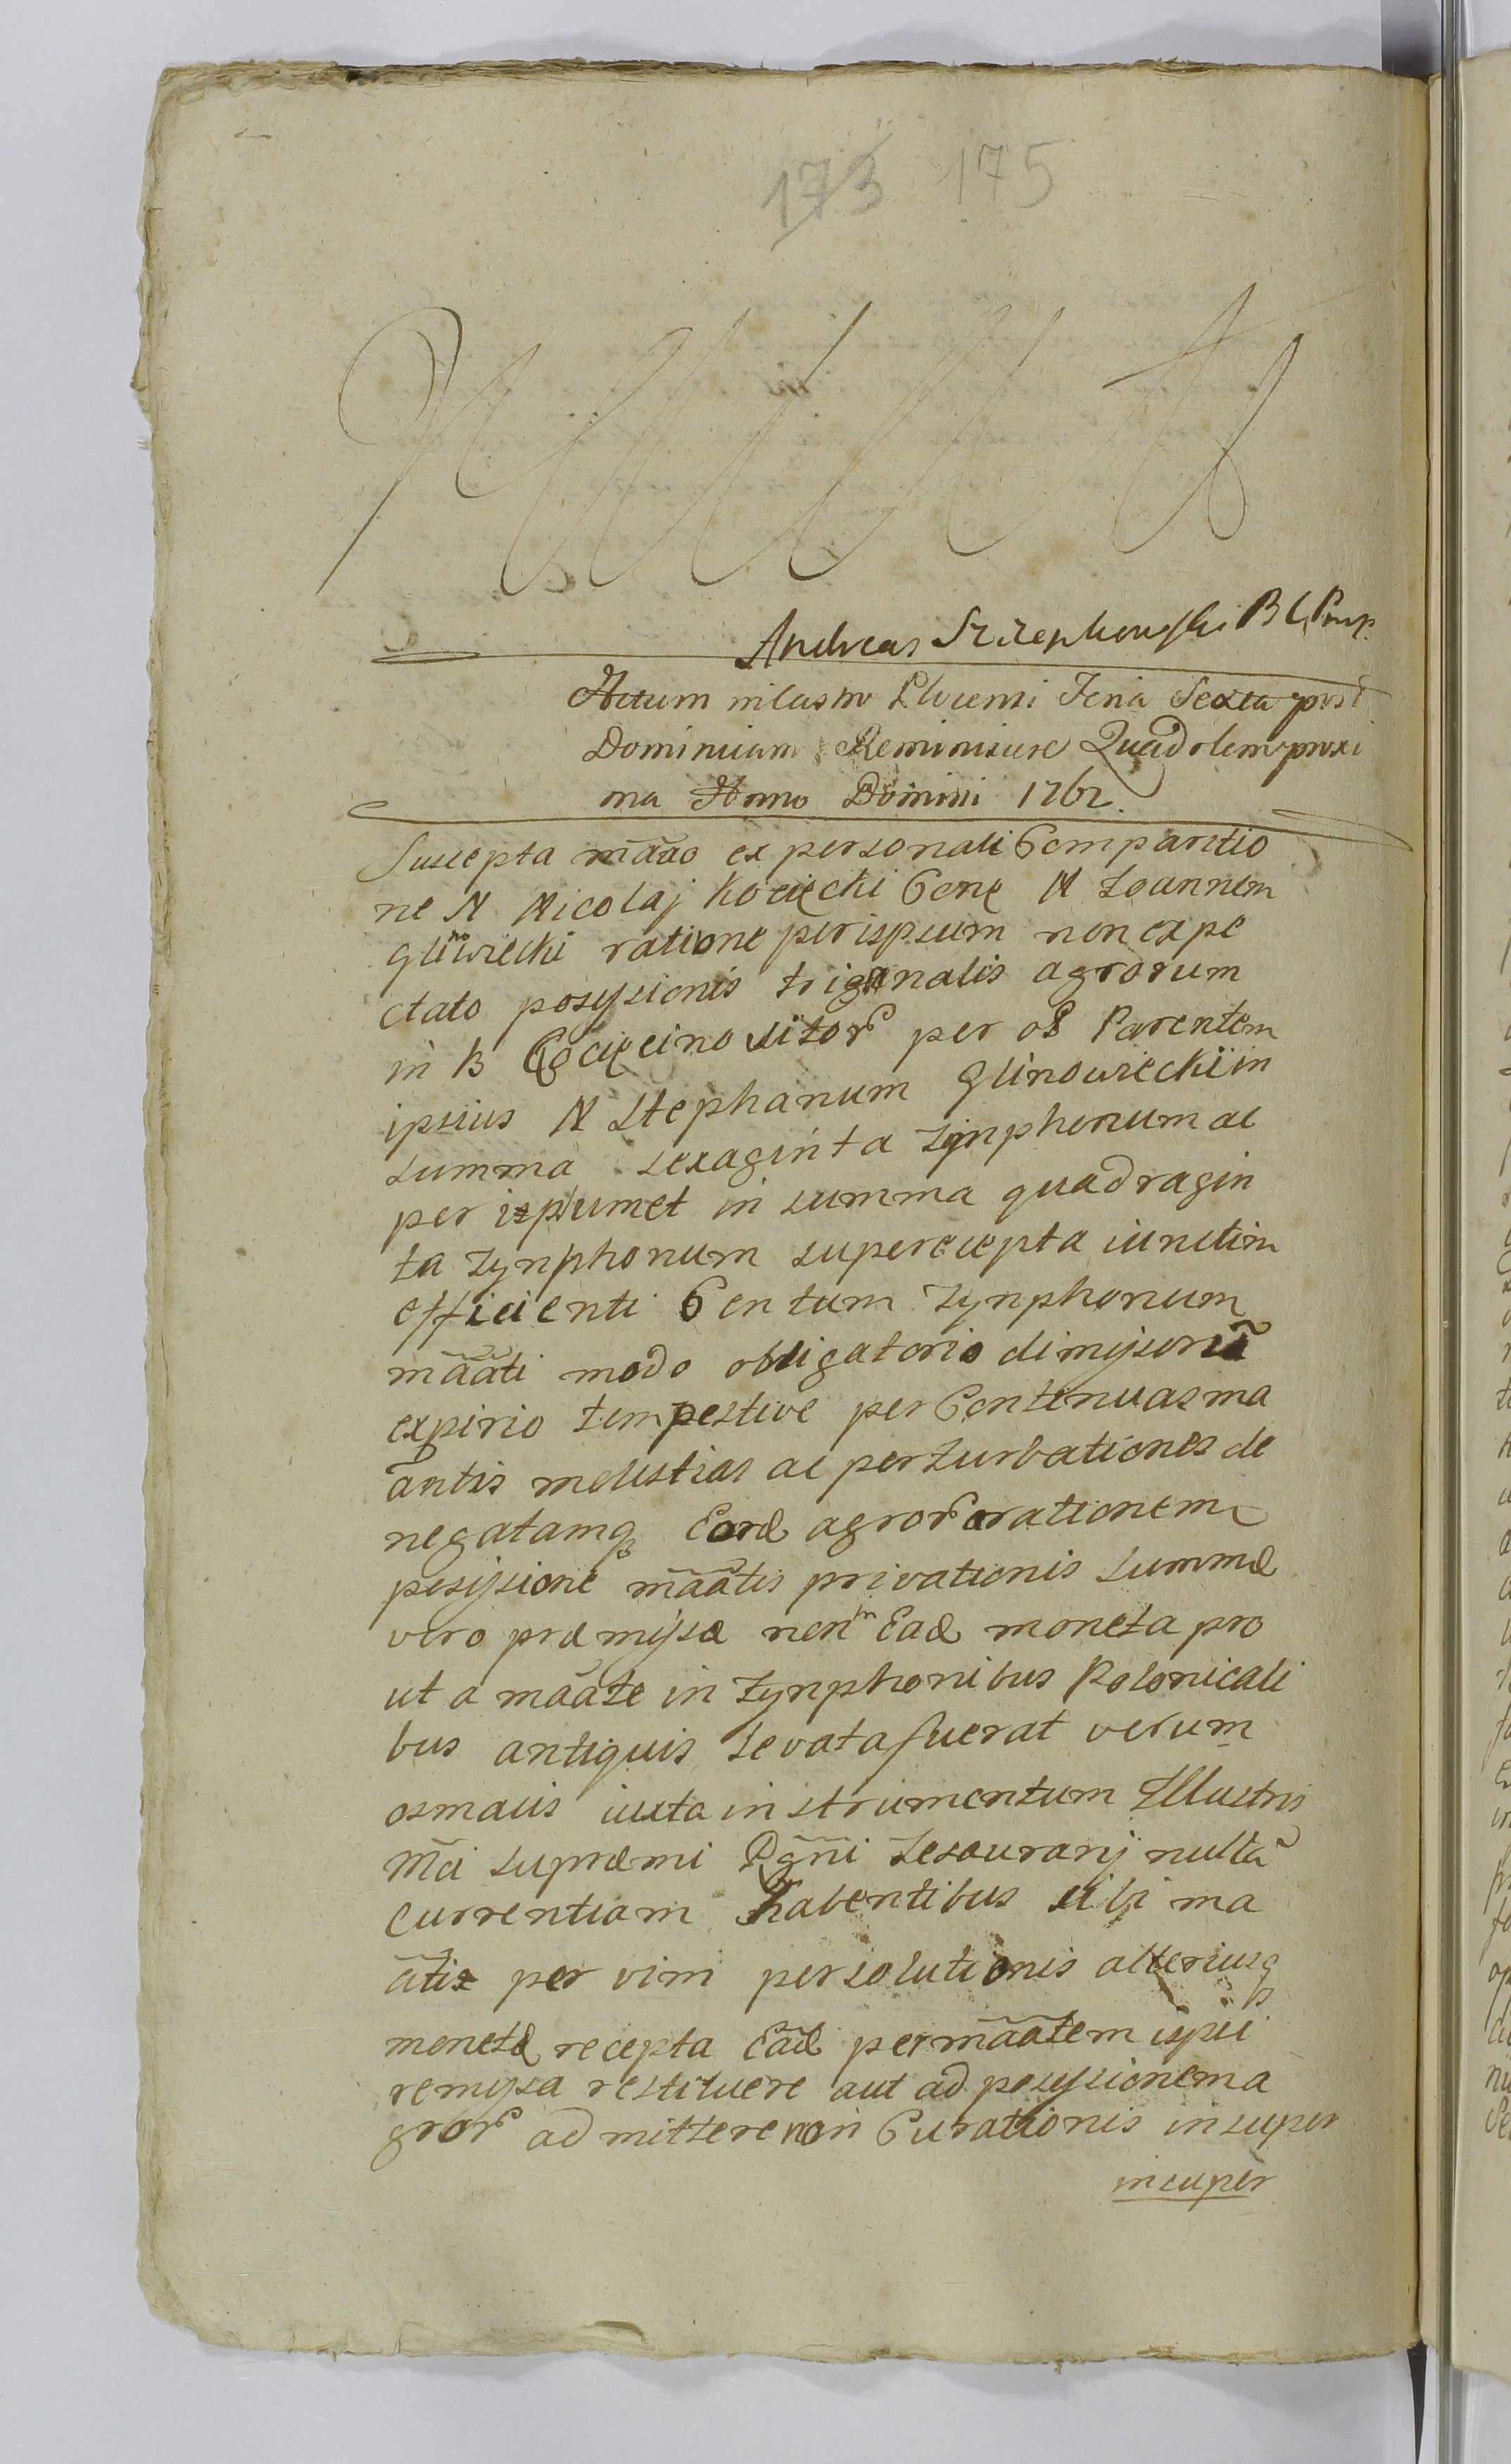 173 175
Andreas Szczepkowski B C Pmp
Actum in Castro Plocensi Feria Sexta post
Dominicam Reminiscere Quadrlem proxi
ma Anno Domini 1762
Suscepta mãão ex personali Comparitio
ne N Nicolaj Kocięcki Cone N Joannem
Glinowiecki ratione per ispsum non expe
ctato possyssionis triginalis agrorum
in B Kocięcino sitor per ol Parentem
ipsius N Stephanum Glinowiecki in
summa sexaginta Tynphonum ac
per ispsumet in summa quadragin
ta Tynphonum supercepta iunctim
efficienti Centum Tynphonum
mããti modo obligatorio dimyssoru
expirio tempestive per Continuas ma
antis molestias ac perturbationes de
negatamq Eord agror orationem
possyssione mããtis privationis summæ
vero præmyssæ non in Ead moneta pro
ut a mããte in Tynphonibus Polonicali
bus antiquis levata fuerat verum
osmacis iuxta instrumentum Illustris
mci supræmi Rgñi Tesaurarij nullã
Currentiam habentibus sibi ma
ãtis per vim persolutionis alteriusq
monetæ recepta Eãd per mããtem ispsi
remyssa restituere aut ad possyssionem a
gror admittere non Curationis insuper
insuper